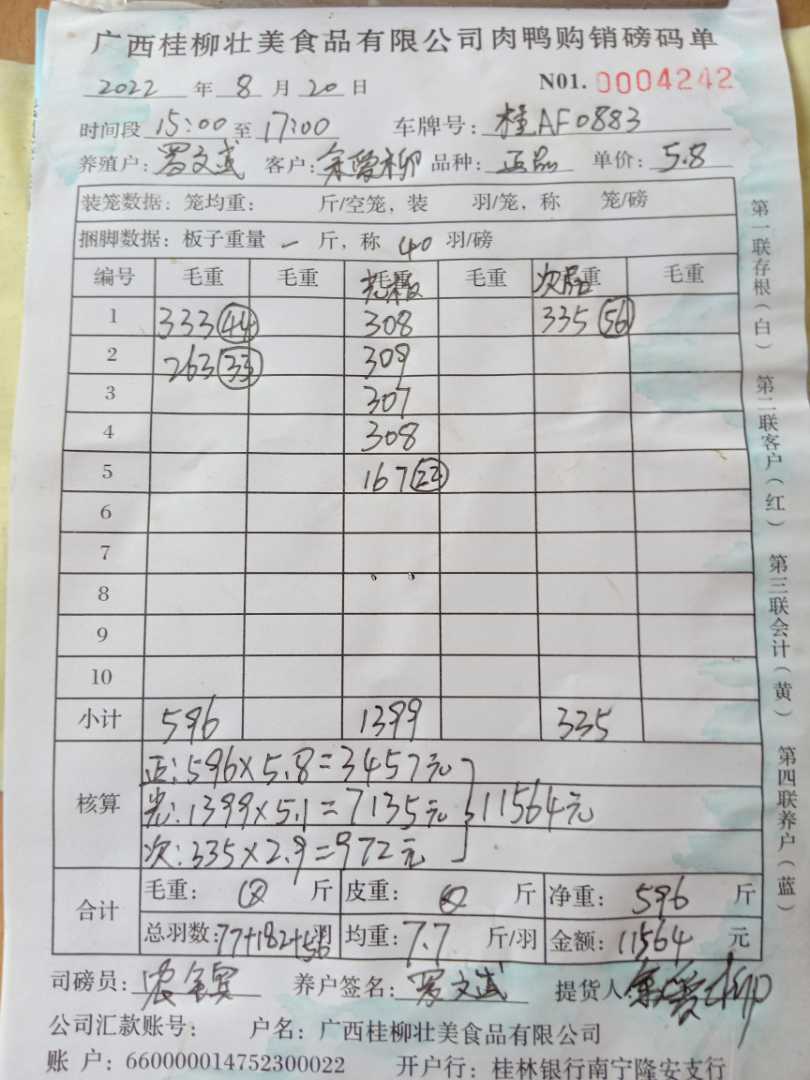 广西桂柳壮美食品有限公司肉鸭购销磅码单
2022 年 8 月 20 日 N01. 0004242
时间段 15:00 至 17:00 车牌号: 桂AF0883
养殖户: 罗文武 客户: 余爱柳 品种: 正品 单价: 5.8
装笼数据: 笼均重: 斤/空笼, 装 羽/笼, 称 笼/磅
捆脚数据: 板子重量 一 斤, 称 40 羽/磅
编号 毛重 毛重 毛重 次品 重 毛重
1 333 44 308 335 56
2 263 33 309
3 307
4 308
5 167 22
6
7
8
9
10
小计 596 1399 335
核算 正: 596×5.8=3457元
光: 1399×5.1=7135元 11564元
次: 335×2.9=972元
合计 毛重: 斤 皮重: 斤 净重: 596 斤
总羽数: 77+182+56羽 均重: 7.7 斤/羽 金额: 11564 元
司磅员: 养户签名: 罗文武 提货人 余爱柳
公司汇款账号: 户名: 广西桂柳壮美食品有限公司
账 户: 660000014752300022 开户行: 桂林银行南宁隆安支行
第一联存根(白) 第二联客户(红) 第三联会计(黄) 第四联养户(蓝)